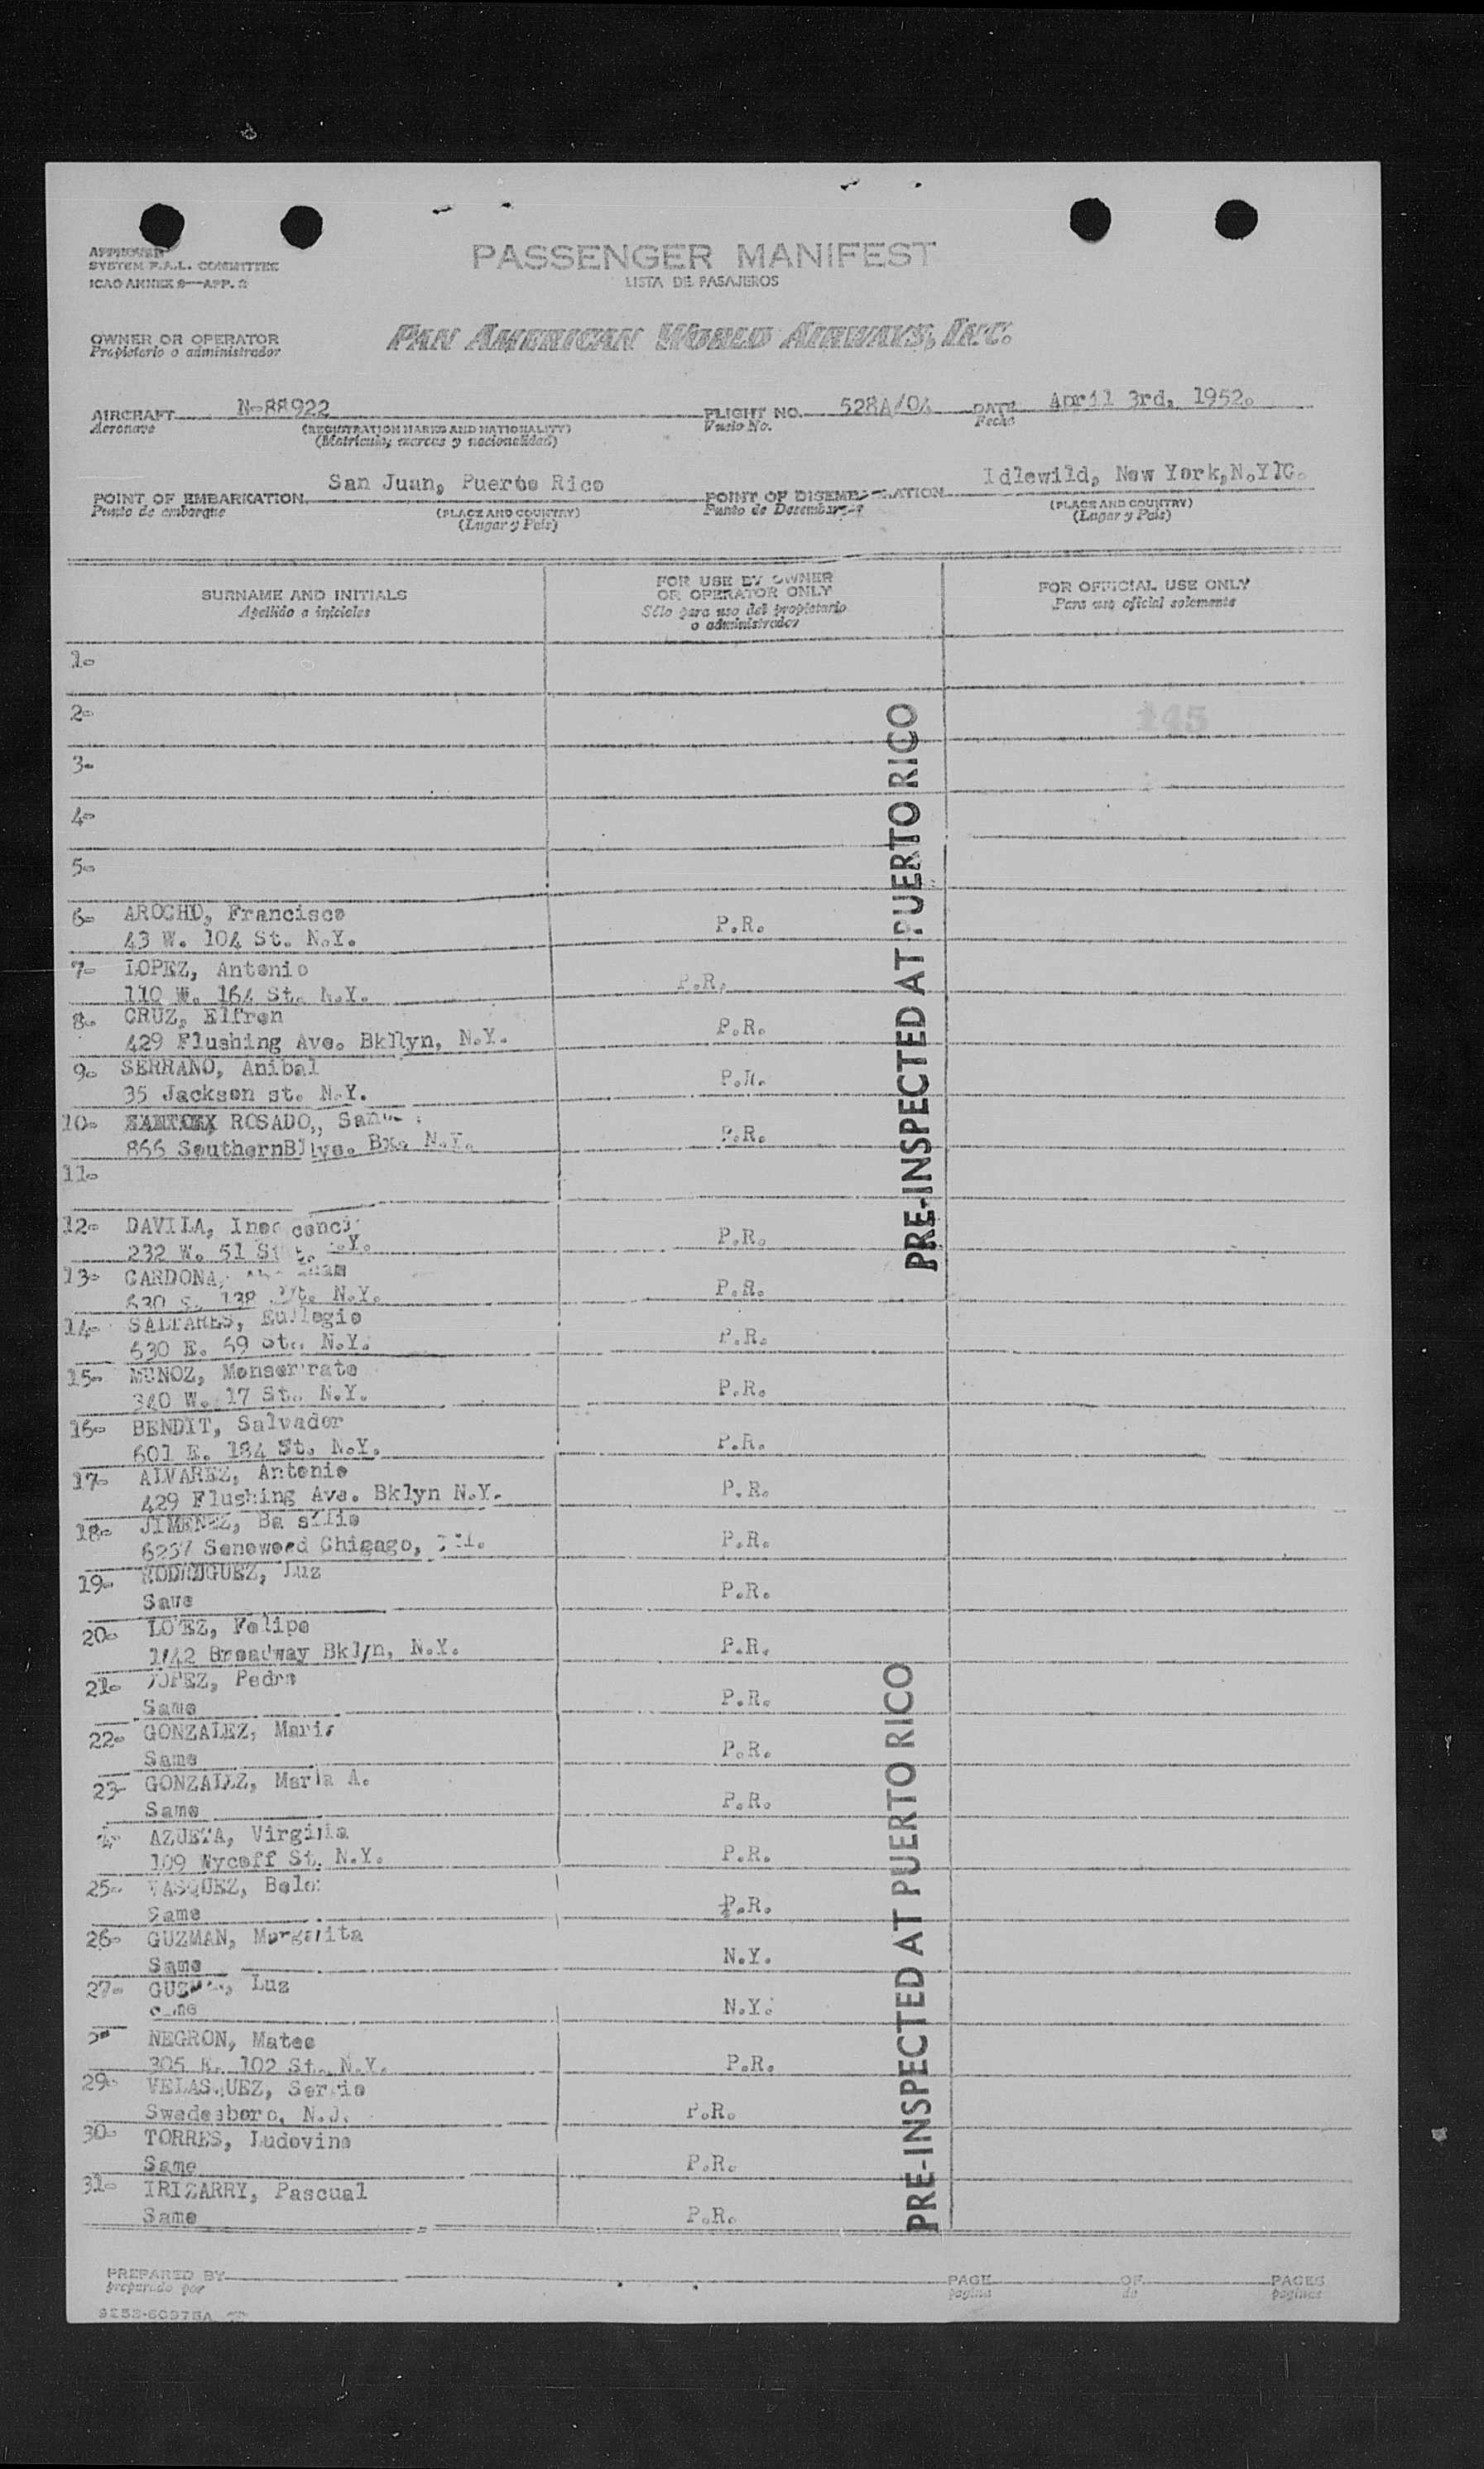 APPROVED
SYSTEM F.A.L. COMMITTEE
ICAO ANNEX 9—APP. 2
PASSENGER MANIFEST
LISTA DE PASAJEROS
OWNER OR OPERATOR
Propietario o administrador
PAN AMERICAN WORLD AIRWAYS, INC.
AIRCRAFT N-88922 FLIGHT NO. 528A/04 DATE April 3rd, 1952.
Aeronave (REGISTRATION MARKS AND NATIONALITY) Vuelo No. Fecha
(Matricula, marcas y nacionalidad)
POINT OF EMBARKATION San Juan, Puerto Rico POINT OF DISEMBARKATION Idlewild, New York,N.Y.
Punto de embarque (PLACE AND COUNTRY) Punto de Desembarque (PLACE AND COUNTRY)
(Lugar y País) (Lugar y País)
SURNAME AND INITIALS
Apellido a iniciales
FOR USE BY OWNER
OR OPERATOR ONLY
Sólo para uso del propietario
o administrador
FOR OFFICIAL USE ONLY
Para uso oficial solamente
1-
2- 145
3-
4-
5-
6- AROCHO, Francisco P.R.
43 W. 104 St. N.Y.
7- LOPEZ, Antonio P.R.
110 W. 164 St. N.Y.
8- CRUZ, Elfren P.R.
429 Flushing Ave. Bkllyn, N.Y.
9- SERRANO, Anibal P.R.
35 Jackson st. N.Y.
10- ROSADO, P.R.
866 Southern Bx. N.Y.
11-
12- DAVILA, P.R.
232 W. 51 St. N.Y.
13- CARDONA, P.R.
630 138 St. N.Y.
14- SALTARES, Eullegio P.R.
530 E. 69 St. N.Y.
15- MUNOZ, Monserrate P.R.
340 W. 17 St. N.Y.
16- BENDIT, Salvador P.R.
601 E. 184 St. N.Y.
17- ALVAREZ, Antonio P.R.
429 Flushing Ave. Bklyn N.Y.
18- JIMENEZ, Basilio P.R.
Chigago, Ill.
19- RODRIGUEZ, Luz P.R.
Same
20- LOPEZ, Felipe P.R.
Broadway Bklyn, N.Y.
21- LOPEZ, Pedro P.R.
Same
22- GONZALEZ, Maria P.R.
Same
23- GONZALEZ, Maria A. P.R.
Same
AZUETA, Virginia P.R.
109 Wycoff St. N.Y.
25- VASQUEZ, P.R.
Same
26- GUZMAN, Margarita N.Y.
Same
27- GUZMAN, Luz N.Y.
Same
NEGRON, Mateo P.R.
305 E. 102 St. N.Y.
29- VELASQUEZ, Sergio P.R.
Swedesboro, N.J.
30- TORRES, Ludovina P.R.
Same
31- IRIZARRY, Pascual P.R.
Same
PRE-INSPECTED AT PUERTO RICO
PRE-INSPECTED AT PUERTO RICO
PREPARED BY PAGE OF PAGES
preparado por pagina de paginas